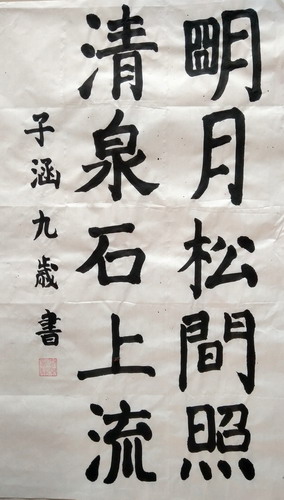 明月松間照
清泉石上流
子涵九歲書